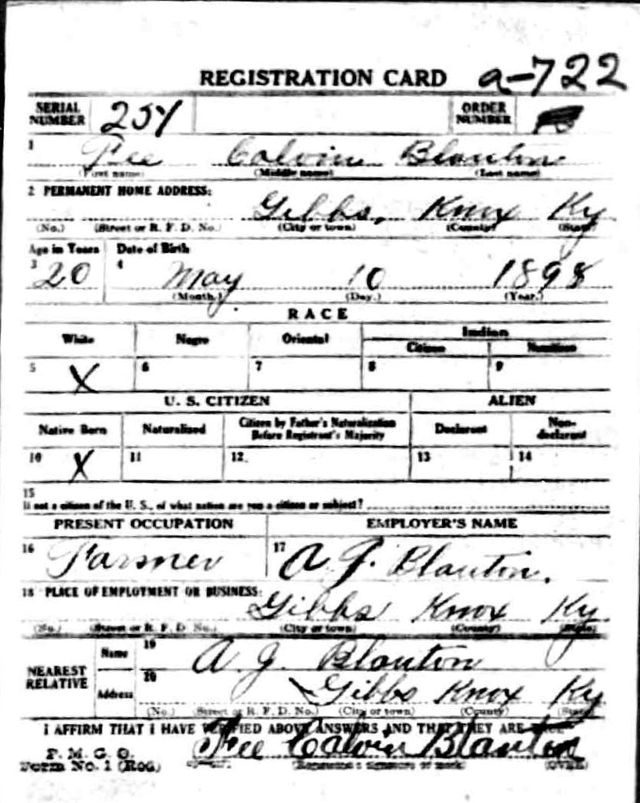 REGISTRATION CARD a-722
SERIAL NUMBER 251 ORDER NUMBER
1 Fee Calvin Blanton
(First name) (Middle name) (Last name)
2 PERMANENT HOME ADDRESS:
Gibbs, Knox Ky
(No.) (Street or R. F. D. No.) (City or town) (County) (State)
Age in Years Date of Birth
3 20 4 May 10 1898
(Month.) (Day.) (Year.)
RACE
White Negro Oriental Indian
Citizen Noncitizen
5 X 6 7 8 9
U. S. CITIZEN ALIEN
Native Born Naturalized Citizen by Father's Naturalization Before Registrant's Majority Declarant Non-declarant
10 X 11 12 13 14
15
If not a citizen of the U. S., of what nation are you a citizen or subject?
PRESENT OCCUPATION EMPLOYER'S NAME
16 Farmer 17 A J. Blanton.
18 PLACE OF EMPLOYMENT OR BUSINESS:
Gibbs Knox Ky.
(No.) (Street or R. F. D. No.) (City or town) (County) (State)
NEAREST RELATIVE Name 19 A. J. Blanton
Address 20 Gibbs Knox Ky
(No.) (Street or R. F. D. No.) (City or town) (County) (State)
I AFFIRM THAT I HAVE VERIFIED ABOVE ANSWERS AND THAT THEY ARE TRUE
P. M. G. O.
Form No. 1 (Red) Fee Calvin Blanton
(Registrant's signature or mark) (OVER)